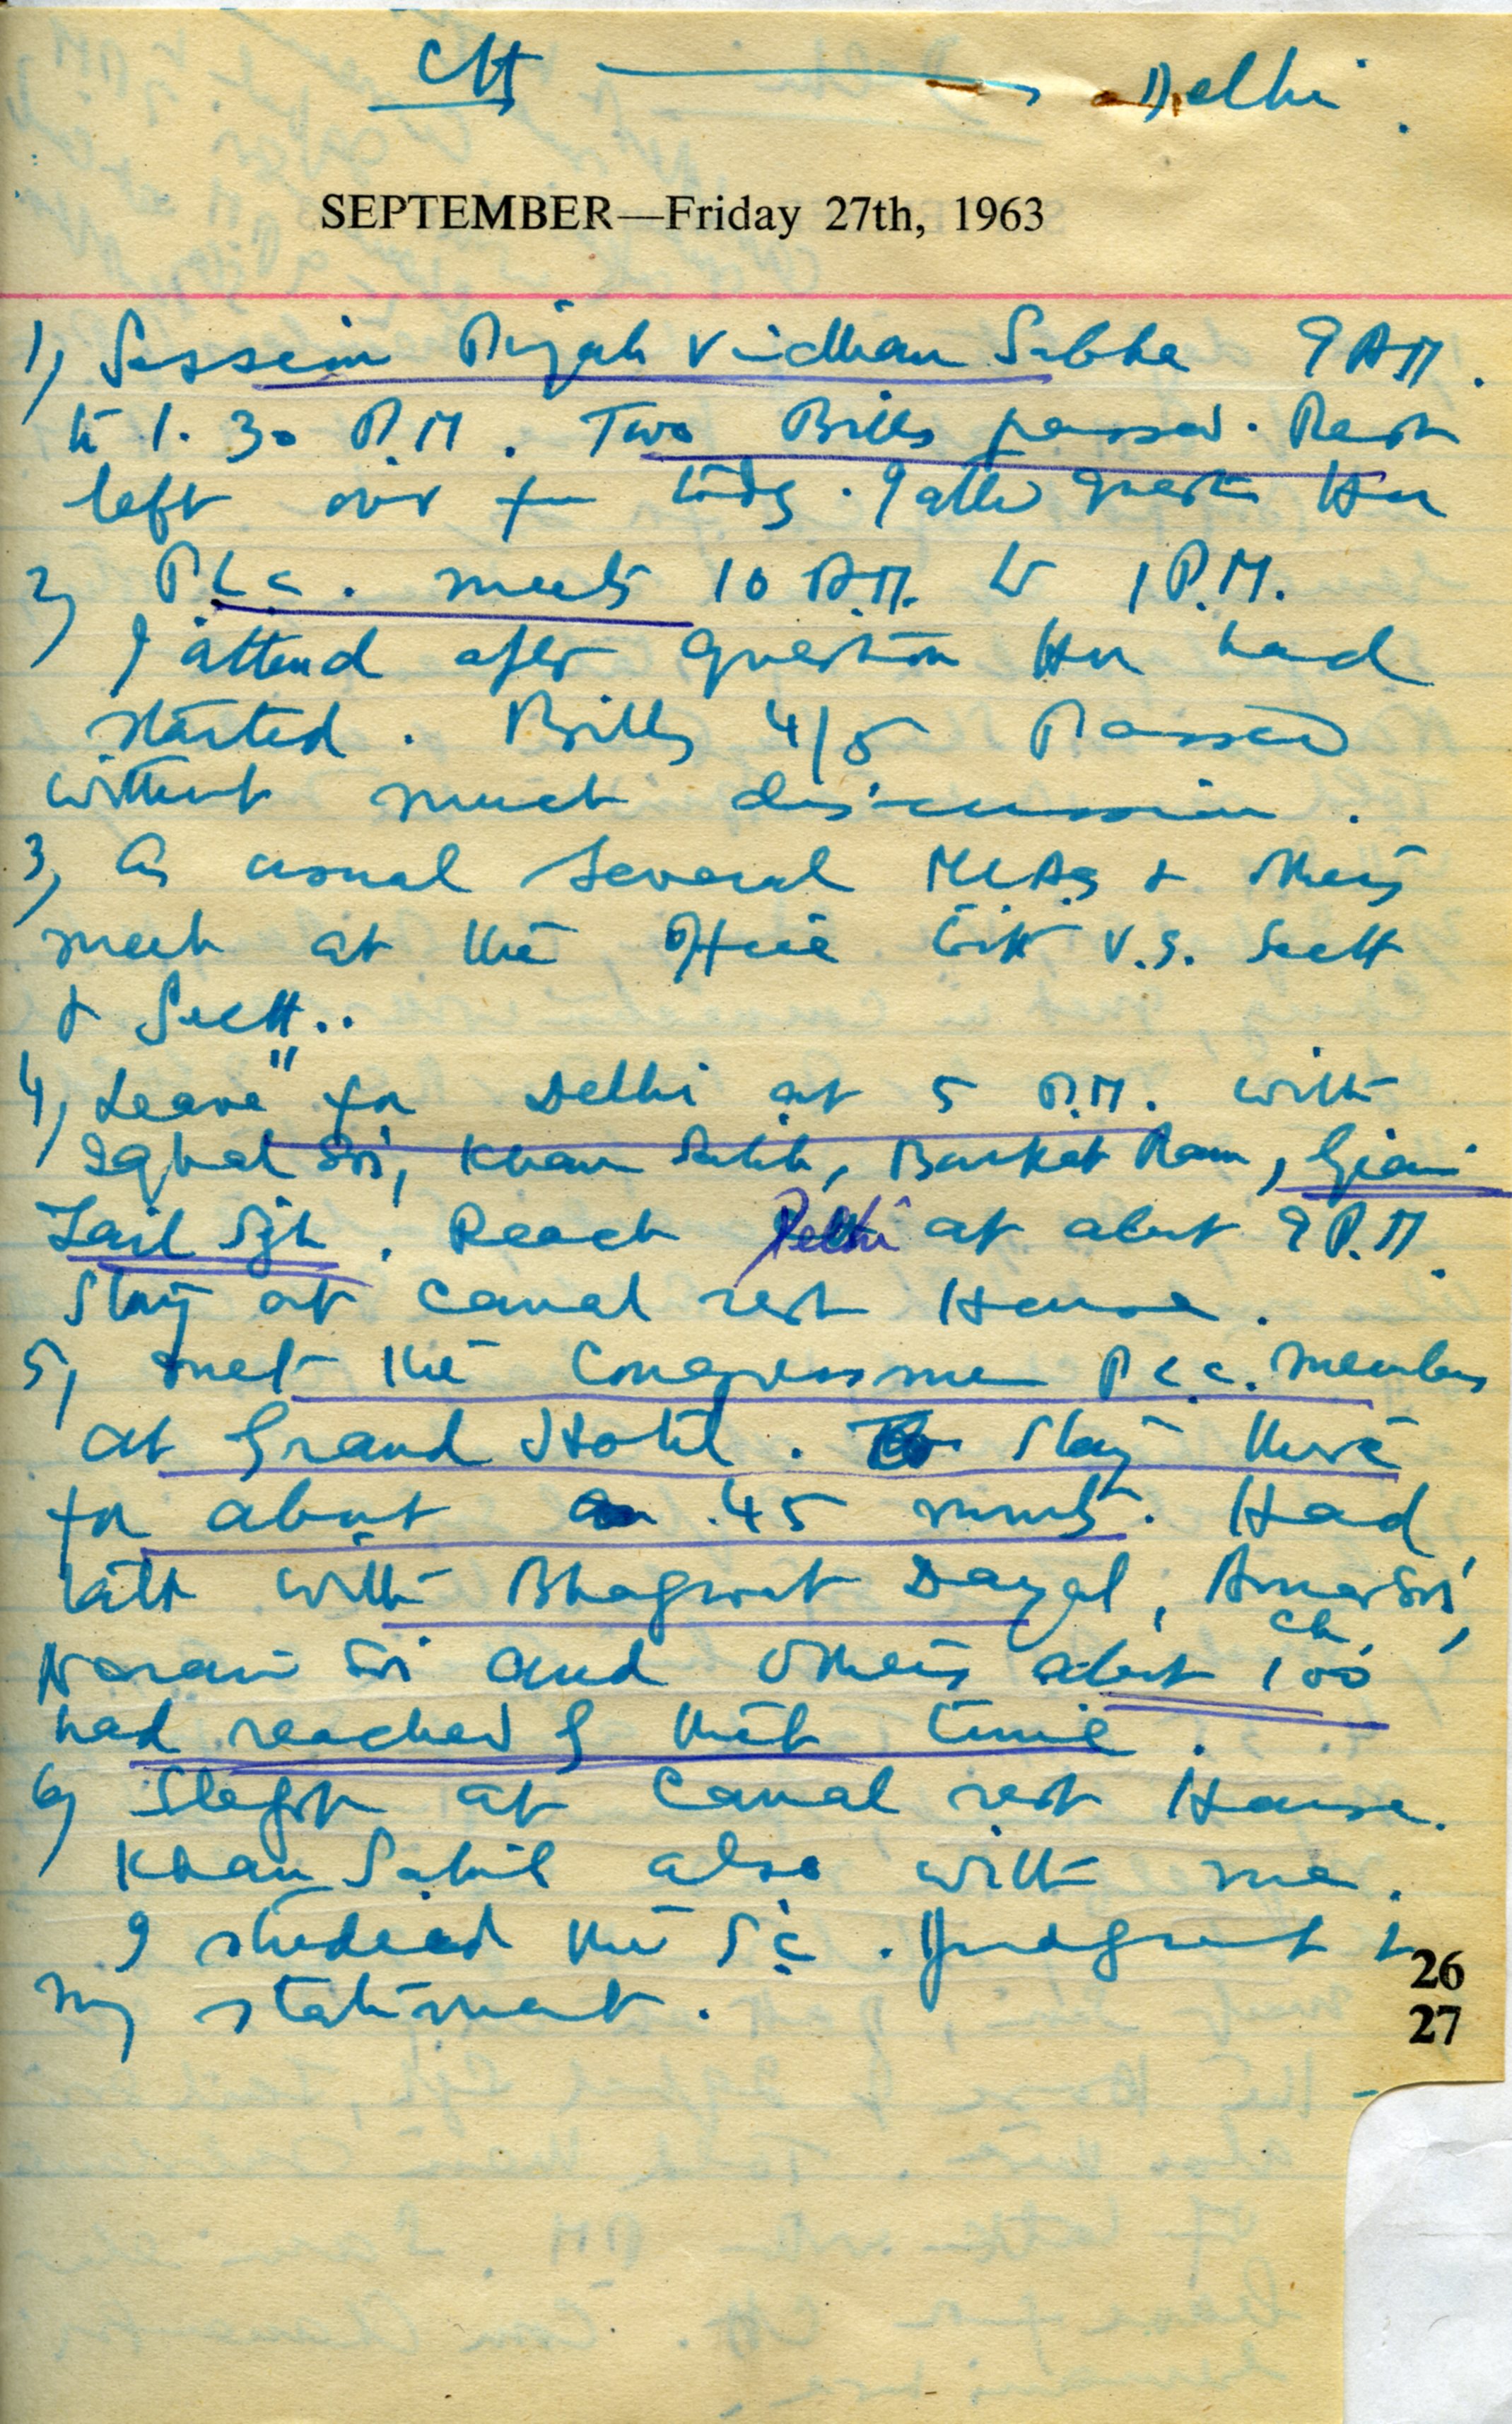 Delhi.
SEPTEMBER—Friday 27th, 1963
1) Session Vidhan Sabha 9 AM.
to 1.30 P.M. Two Bills passed. Rest
left over for today.
2) P.L.C. meets 10 A.M. to 1 P.M.
I attend after question Hour had
started. Bills 4/5 Passed
without much discussion.
3) As usual several MLAs & others
meet at the Office V.S. Sectt
& Sectt..
4) Leave" for Delhi at 5 P.M. with
Iqbal Khan Sahib, Barkat Ram, Giani
Zail Sgh. Reach Delhi at about 9 P.M.
Stay at Canal rest House.
5) met the Congressmen members
at Grand Hotel. Stay there
for about 45 Had
talk with Bhagwat Dayal,
and others about 100
had reached by that time.
6) Slept at Canal rest House.
Khan Sahib also with me.
I the S.C. &
my statement.
26
27